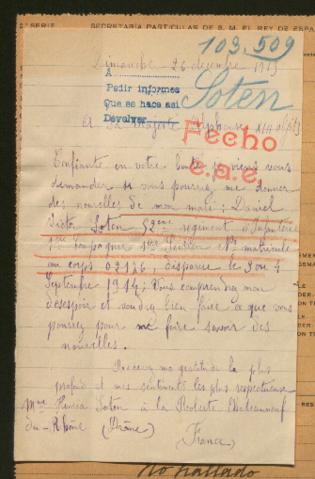 SERIE SECRETARÍA PARTICULAR DE S. M. EL REY DE ESPA
103,509
Dimanche 26 décembre 1915
A
Pedir informes
Que se hace así
Devolver
Soten
A Sa Majesté Alphonse XIII
Fecho
Confiante en votre bonté je viens vous
demander si vous pourriez me donner
des nouvelles de mon mari; Daniel
Soten 52eme regiment d'Infanterie
1ere Compagnie 1ere Section No matricule
au corps 02126, disparue le 3 ou 4
Septembre 1914; Vous comprendrez mon
désespoir et voudrez bien faire ce que vous
pourrez pour me faire savoir des
nouvelles.
Recevez ma gratitude la plus
profond et mes sentiments les plus respectueux
Mme Soten à la Chateauneuf
du-Rhône (Drôme)
(France)
No hallado